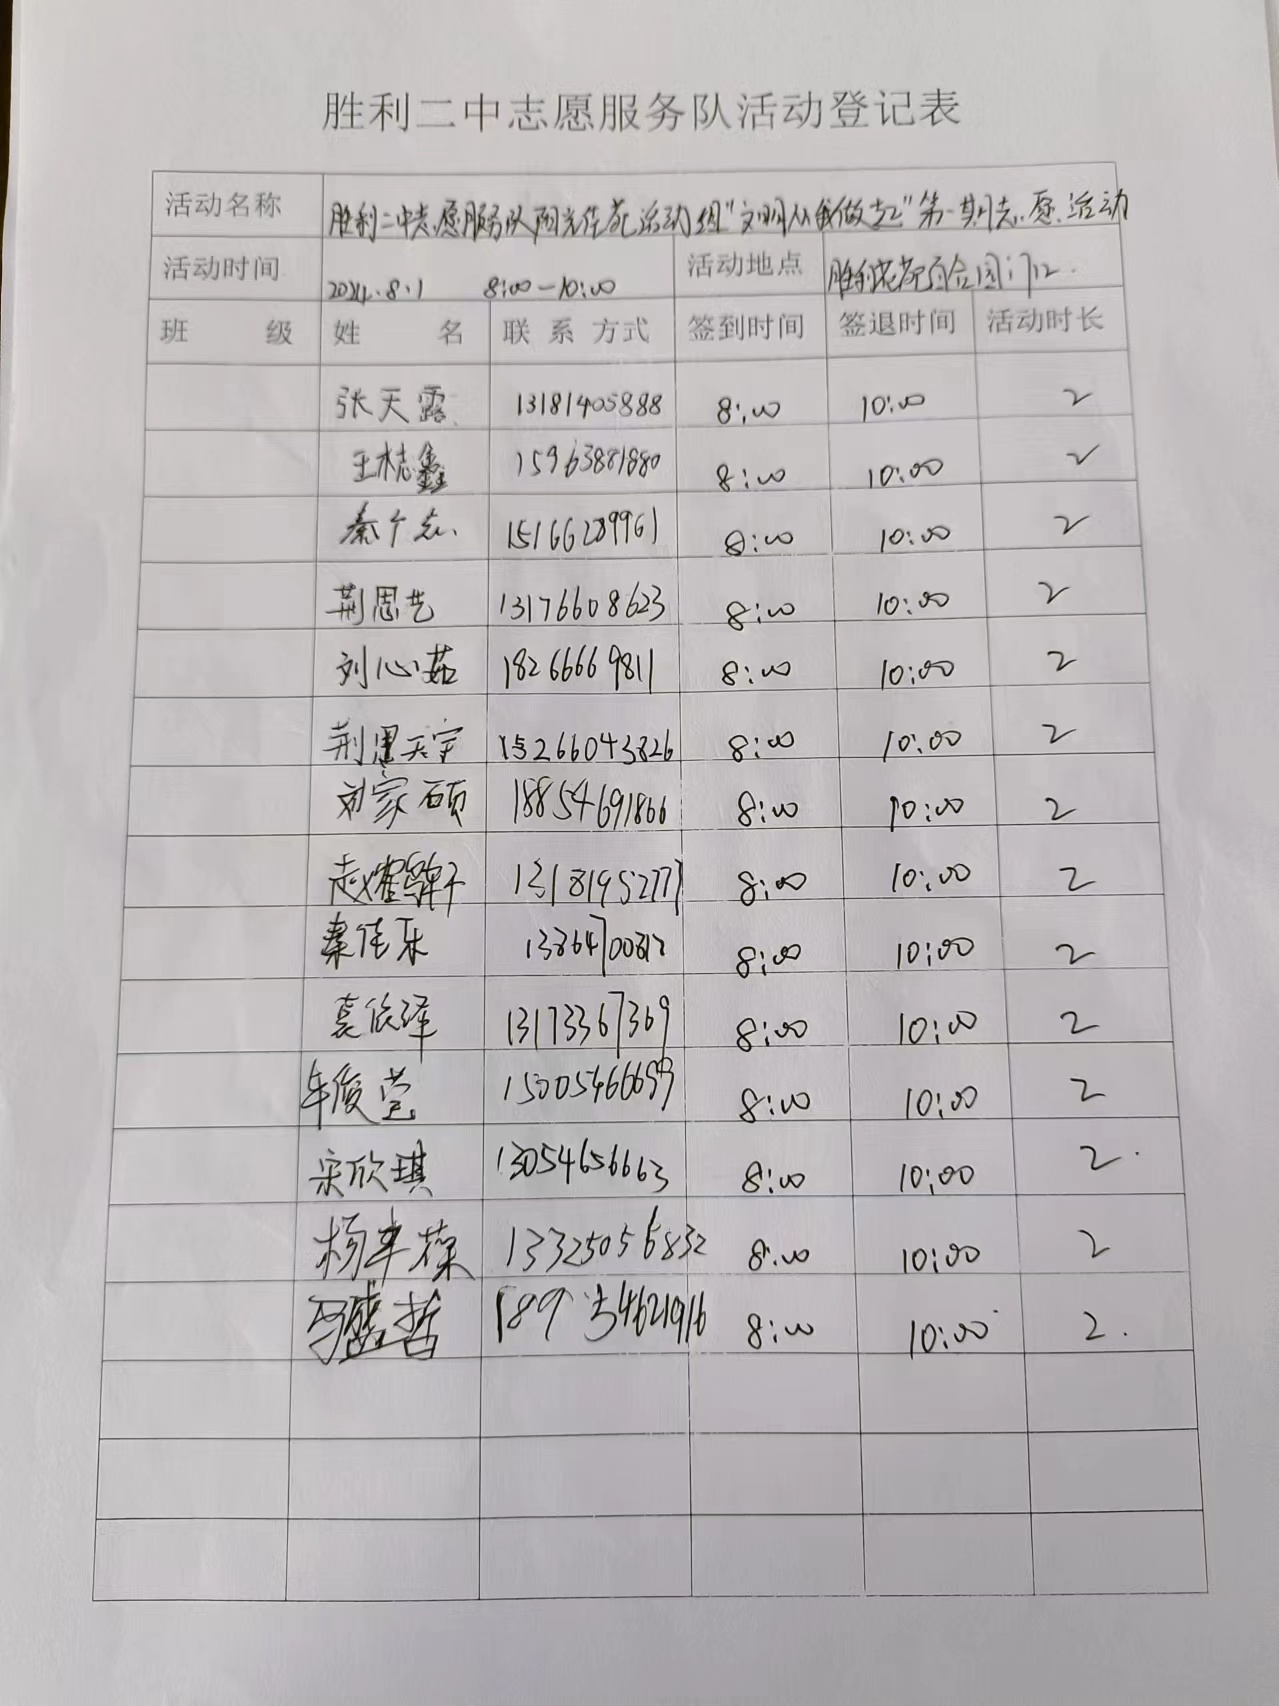 胜利二中志愿服务队活动登记表
活动名称 胜利二中志愿服务队阳光佳苑活动组"文明从我做起"第一期志愿活动
活动时间 2024.8.1 8:00-10:00 活动地点 胜利花苑百合园门口.
班 级 姓 名 联系方式 签到时间 签退时间 活动时长
张天露 13181405888 8:00 10:00 2
王志鑫 15963881880 8:00 10:00 2
秦个志 15166289961 8:00 10:00 2
荆思艺 13176608623 8:00 10:00 2
刘心茹 18266669811 8:00 10:00 2
荆思天宇 15266043826 8:00 10:00 2
刘家硕 18854691866 8:00 10:00 2
赵 13181952777 8:00 10:00 2
秦佳乐 8:00 10:00 2
袁依泽 13173367369 8:00 10:00 2
牟俊莹 15005466699 8:00 10:00 2
宋欣琪 13054656663 8:00 10:00 2.
杨丰葆 13325056832 8:00 10:00 2
马盛哲 18954621916 8:00 10:00 2.